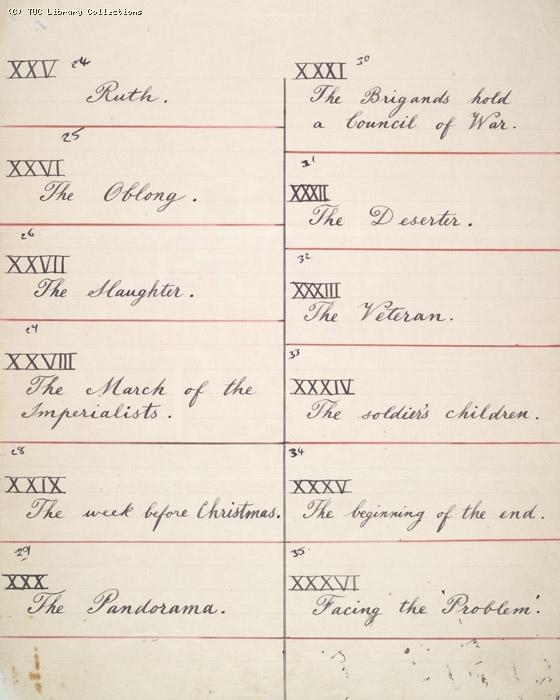 (C) TUC Library Collections
XXV 24
Ruth.
25
XXVI
The Oblong.
26
XXVII
The Slaughter.
27
XXVIII
The March of the
Imperialists.
28
XXIX
The week before Christmas.
29
XXX
The Pandorama.
XXXI 30
The Brigands hold
a Council of War.
31
XXXII
The Deserter.
32
XXXIII
The Veteran.
33
XXXIV
The soldier's children.
34
XXXV
The beginning of the end.
35
XXXVI
Facing the 'Problem'.